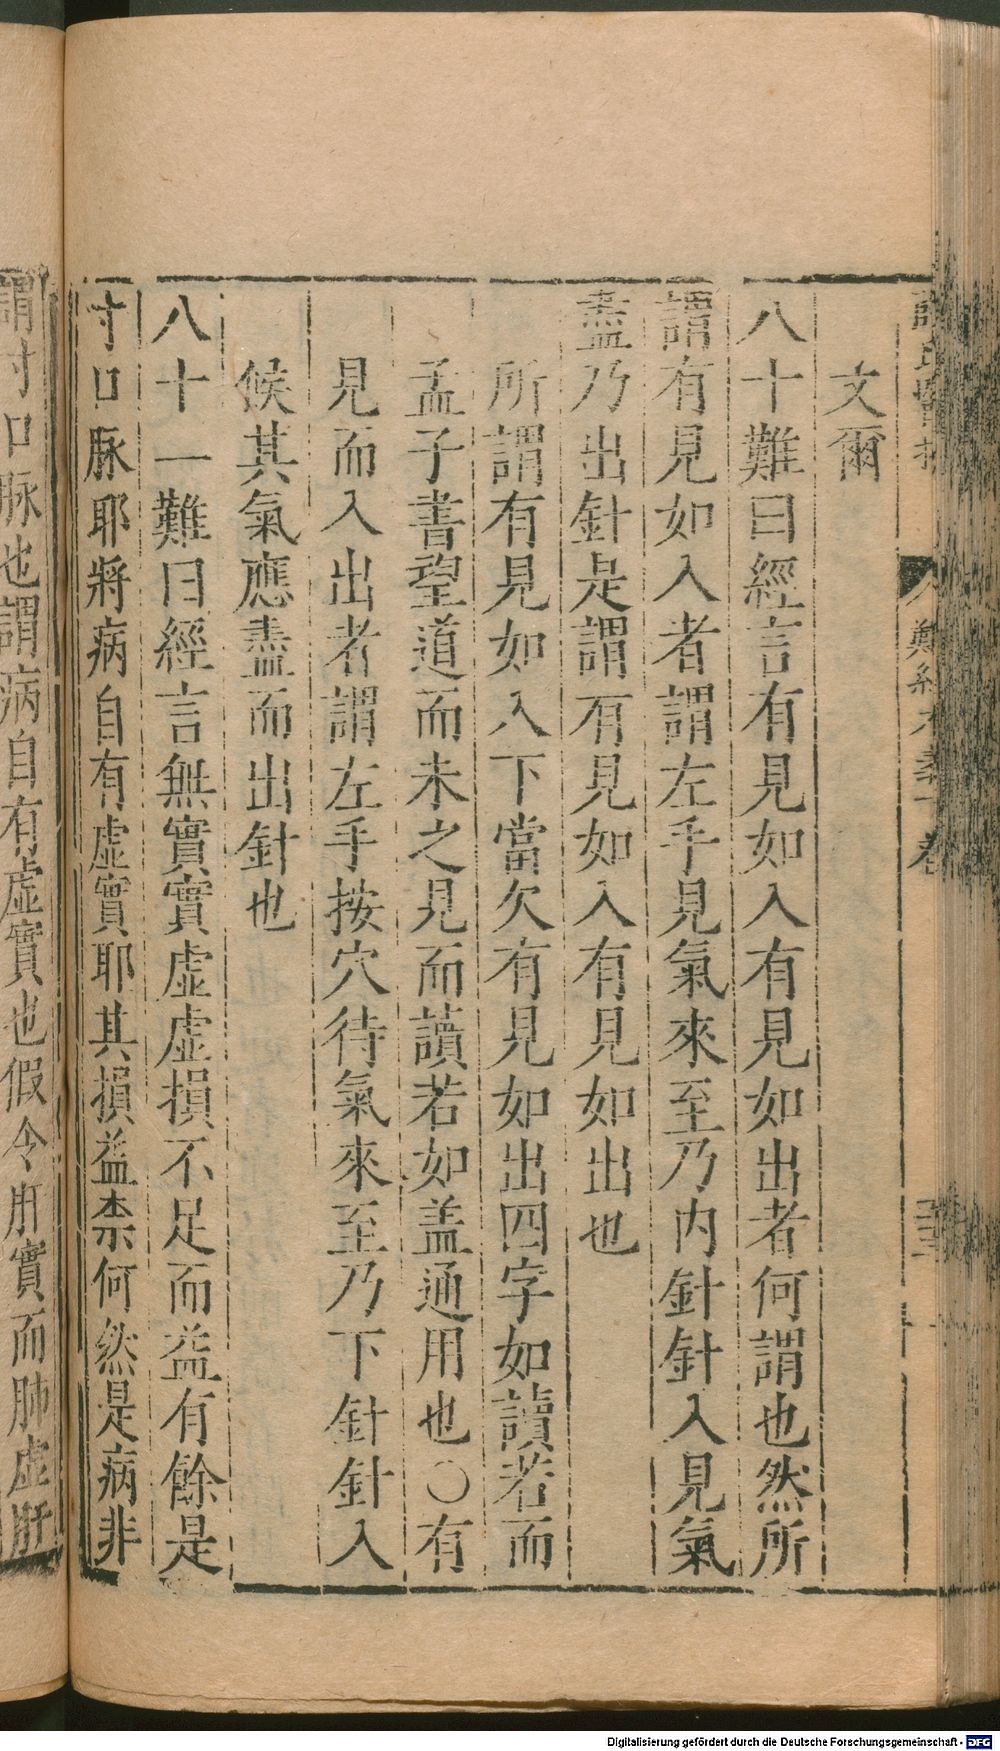 文爾
八十難曰經言有見如入有見如出者何謂也然所
謂有見如入者謂左手見氣來至乃内針針入見氣
盡乃出針是謂有見如入有見如出也
所謂有見如入下當欠有見如出四字如讀若而
孟子書望道而未之見而讀若如盖通用也○有
見而入出者謂左手按穴待氣來至乃下針針入
候其氣應盡而出針也
八十一難曰經言無實實虛虛損不足而益有餘是
寸口脉耶將病自有虛實耶其損益柰何然是病非
謂寸口脉也謂病自有虛實也假令肝實而肺虛肝
Digitalisierung gefördert durch die Deutsche Forschungsgemeinschaft - DFG